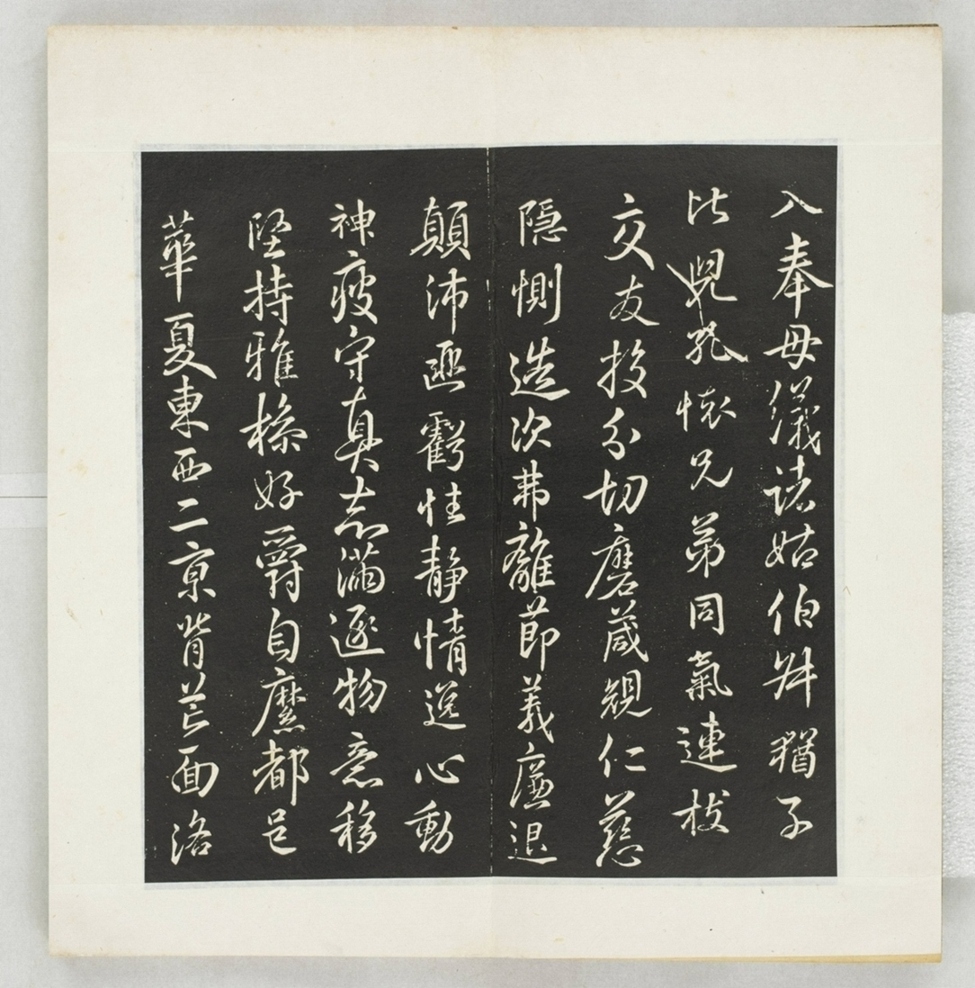 入奉母儀諸姑伯叔猶子
比兒孔懷兄弟同氣連枝
交友投分切磨箴規仁慈
隱惻造次弗離節義廉退
顛沛匪虧性靜情逸心動
神疲守真志滿逐物意移
堅持雅操好爵自縻都邑
華夏東西二京背芒面洛